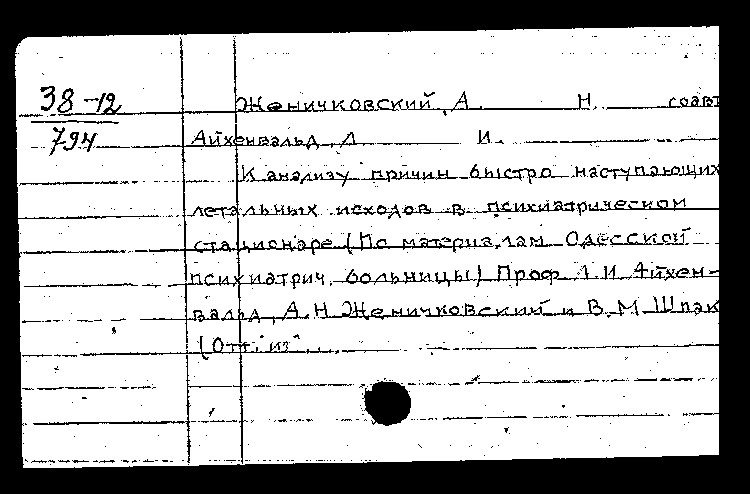 38-12
794
Женичковский, А. Н. соавт
Айхенвальд, Л. И.
К анализу причин быстро наступающих
летальных исходов в психиатрическом
стационаре (По материалам Одесской
психиатрич. больницы) Проф. Л. И. Айхен-
вальд, А. Н. Женичковский и В. М. Шпак
(Отт. из